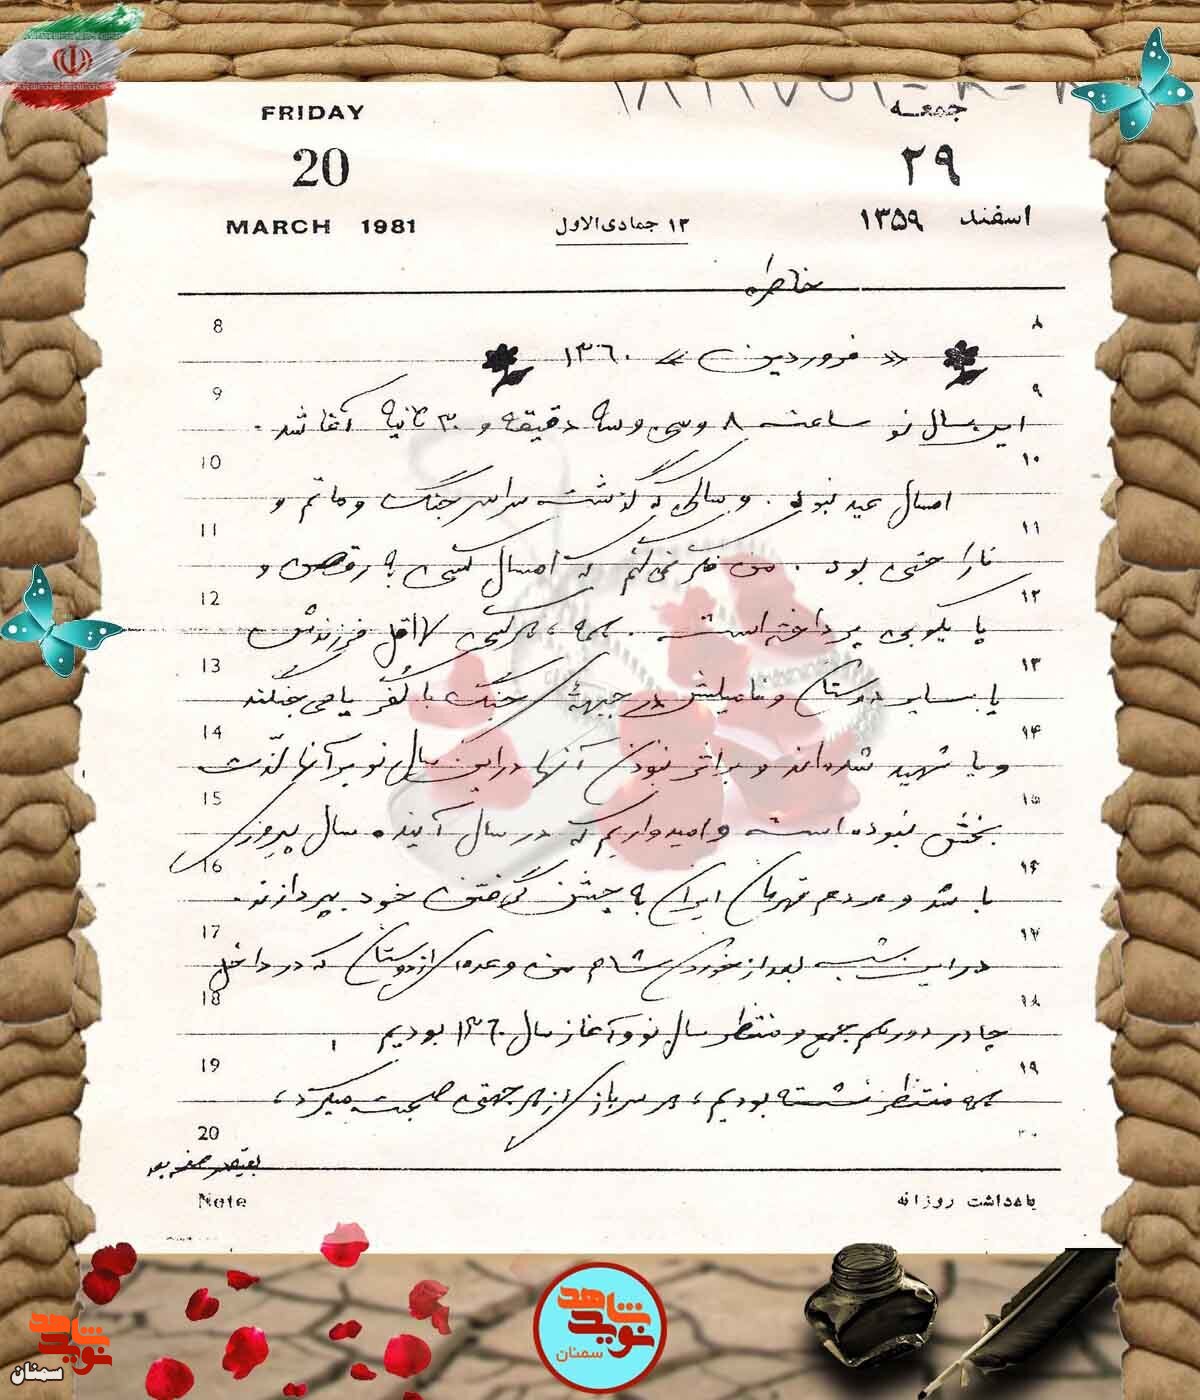 FRIDAY
20
MARCH 1981
جمعه
۲۹
اسفند ۱۳۵۹
۱۳ جمادی‌الاول
خاطره
« فروردین » ۱۳۶۰
این سال نو ساعت ۸ و سی و سه دقیقه و ۳۰ ثانیه آغا شد .
امسال عید نبود . و سالی که گذشت سراسر جنگ و ماتم و
ناراحتی بود . من فکر نمی‌کنم که امسال کسی به رقص و
پایکوبی پرداخته است . همه ، هر کسی لااقل فرزندش
یا سایر دوستان و فامیلش در جبههٔ جنگ با کفر یا می‌جنگند
و یا شهید شده‌اند و براثر نبودن آنها در این سال نو بر آنها لذّت
بخش نبوده است و امیدواریم که در سال آینده سال پیروزی
باشد و مردم قهرمان ایران به جشن گرفتن خود بپردازند .
در این شب بعد از خوردن شام من و عده‌ای از دوستان که در داخل
چادر دور هم جمع و منتظر سال نو و آغاز سال ۱۳۶۰ بودیم
همه منتظر نشسته بودیم ، هر سربازی از هر جهتی صحبت میکرد ،
بقیه در صفحه بعد
8 ۸
9 ۹
10 ۱۰
11 ۱۱
12 ۱۲
13 ۱۳
14 ۱۴
15 ۱۵
16 ۱۶
17 ۱۷
18 ۱۸
19 ۱۹
20 ۲۰
Note
یادداشت روزانه
نوید شاهد
سمنان
نوید شاهد
سمنان